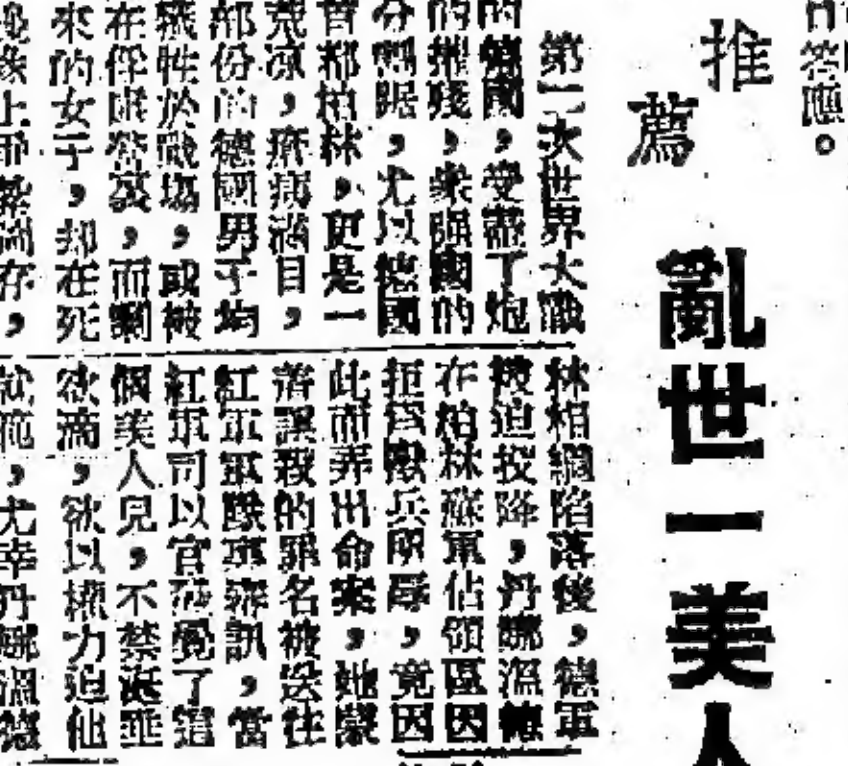 日答應。
推薦
亂世一美人
第二次世界大戰
的德國，受盡了炮
的摧殘，衆强國的
分割踞，尤以德國
首都柏林，更是一
荒凉，瘡痍滿目，
部份的德國男子均
犧牲於戰塲，或被
在俘虜營裏，而剩
來的女子，却在死
林相繼陷落後，德軍
被迫投降，丹娜溫德
在柏林蘇軍佔領區因
拒爲獸兵所辱，竟因
此而弄出命案，她蒙
着謀殺的罪名被送往
紅軍軍隊裏審訊，當
紅軍司以官發覺了這
個美人兒，不禁涎垂
欲滴，欲以權力迫他
範，尤幸丹娜溫德